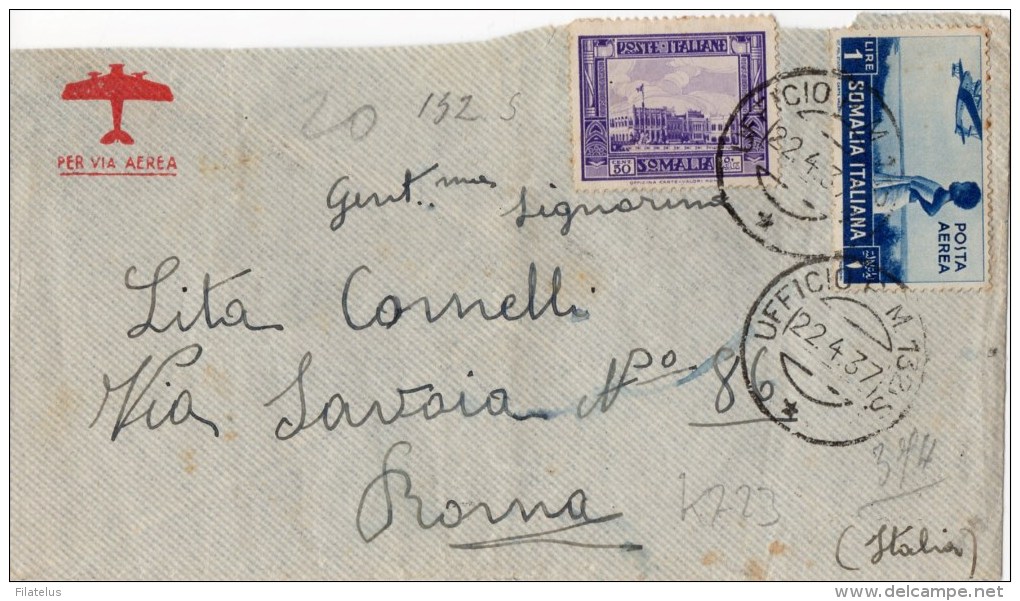 PER VIA AEREA
20
132 S
POSTE ITALIANE
CENT. 50 SOMALIA
LIRE 1 SOMALIA ITALIANA
POSTA AEREA
UFFICIO P M
22.4.37
UFFICIO P M 132 S
22.4.37
Gent.ma Signorina
Lita Cornelli
Via Savoia No. 86
Roma
K723
374
(Italia)
Filatelus
delcampe.net